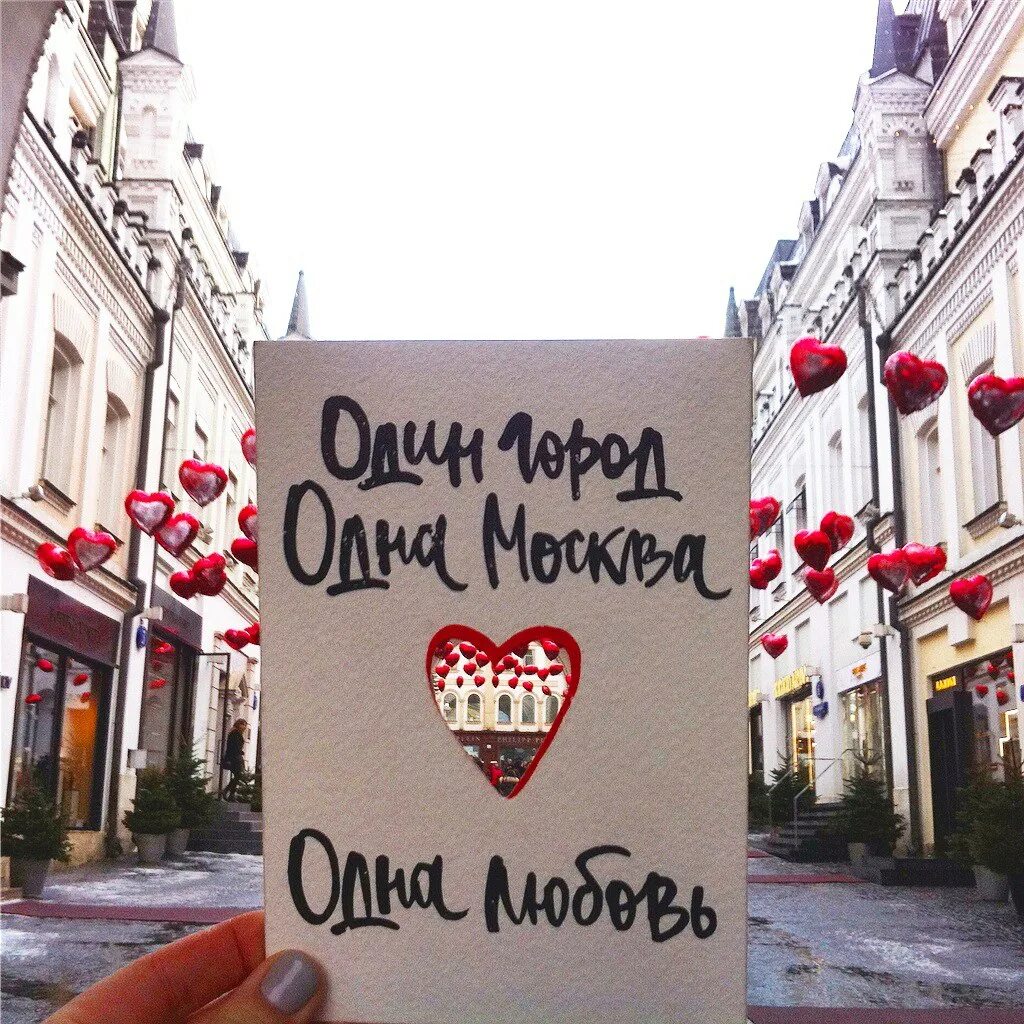 Один город
Одна Москва
Одна любовь